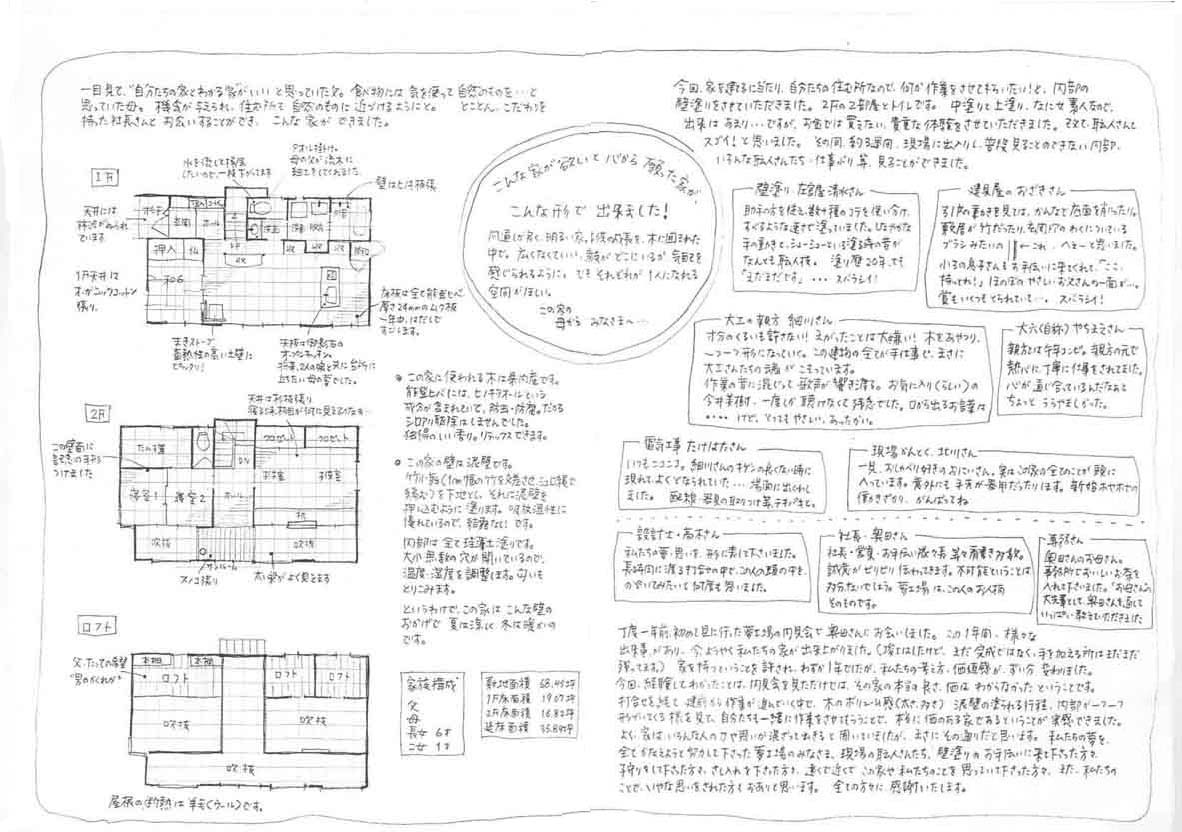 一目見て、"自分たちの家とわかる家"がいい と思っていた父。食べ物には 気を使って自然のものを…と
思っていた母。機会が与えられ、住む所も 自然のものに 近づけるようにと。とことん、こだわりを
持った社長さんと お会いすることができ、こんな家が できました。
1F
水を流して掃除
したいので、一段下がってます
タオル掛け。
母の父が流木に
細工をしてくれました。
壁はヒバ板張
天井には
柿渋がぬられ
ています
1F天井は
オーガニックコットン
張り。
玄関
ホール
押入
仏
和6
UP
収
まきストーブ
蓄熱性の高い土壁に
ピッタリ!
天板は御影石の
オープンキッチン。
将来、2人の娘と共に台所に
立ちたい母の夢でした。
床板は全て能登ヒバ
厚さ24mmのムク板
一年中、はだしで
すごします。
2F
天井は杉板張り
寝る時、柾目が何に見えるかなぁ…
この壁面に
記念の手形
つけました
寝室1
寝室2
ホール
DN
クロゼット
クロゼット
子供室
子供室
机
吹抜
吹抜
サンルーム
スノコ張り
太い梁がよく見えます
ロフト
父、たっての希望
"男のかくれ家"
本棚
本棚
ロフト
ロフト
ロフト
吹抜
吹抜
吹抜
屋根の断熱は羊毛(ウール)です。
こんな家が欲しいと心から願った家が、
こんな形で 出来ました!
間違しが良く、明るい家。子供の成長を、木に囲まれた
中で。広くなくていい、誰がどこにいるか気配を
感じられるように。でも それぞれが 1人になれる
空間がほしい。
この家の
母から みなさまへ…
この家に使われる木は県内産です。
能登ヒバには、ヒノキチオールという
成分が含まれていて、防虫・防腐。だから
シロアリ駆除はしませんでした。
独特のいい香り。リラックスできます。
この家の壁は泥壁です。
押し込むように塗ります。吸放湿性に
優れているので、結露なしです。
内部は全て珪藻土塗りです。
大小無数の穴が開いているので、
温度・湿度を調整します。匂いも
とりこみます。
というわけで、この家は こんな壁の
おかげで 夏は涼しく、冬は暖かいの
です。
家族構成
父
母
長女 6才
二女 1才
敷地面積 68.45坪
1F床面積 19.07坪
2F床面積 16.82坪
延床面積 35.89坪
今回、家を建るに当たり、自分たちの住む所なので、何か作業をさせてもらいたい!と、内部の
壁塗りをさせていただきました。2Fの2部屋とトイレです。中塗りと上塗り、なにせ素人なので、
出来は あまり…ですが、お金では買えない、貴重な体験をさせていただきました。改めて、職人さんて
スゴイ!と思いました。その間、約3週間、現場に出入りし、普段見ることのできない内部、
いろんな職人さんたち・仕事ぶり等、見ることができました。
壁塗り 左官屋 清水さん
助手の方を従え、数十種のコテを使い分け、
すべるような速さで塗っていました。しなやかな
手の動きで、シューシューという塗る時の音が
なんとも職人技。塗り歴20年、でも
「まだまだです」…スバラシイ!
建具屋のおざきさん
引戸の動きを見ては、かんなで底面を削ったり。
敷居が竹だったり、玄関戸のわくについている
ブラシみたいの これ、へぇーと思いました。
小3の息子さんもお手伝いに来てくれて、「ここ、
持ってね!」ほのぼのやさしいお父さんの一面が…。
賞もいくつもとられていて…、スバラシイ!
大工の親方 細川さん
寸分のくるいも許さない! まがったことは大嫌い! 木をあやつり、
一つ一つ形になっていく。この建物の全てが手仕事で、まさに
大工さんたちの魂が こもっています。
作業の音に混じって 歌声が響き渡る。お気に入り(らしい)の
今井美樹、一度しか聴けなくて残念でした。口から出るお言葉は
…けど、とっても やさしい、あったかい。
大六(自称) やちまえさん
親方とは名コンビ。親方の元で
熱心に、丁寧に仕事をされてました。
心が通じ合っているんだなぁと
ちょっと うらやましかった。
電気工事 たけはたさん
いつもニコニコ。細川さんのキゲンの良くない時に
現れて、よくどなられていた…場面に出くわし
ました。配線・器具の取りつけは天才的なものでした。
現場かんとく、北川さん
一見、おしゃべり好きのおにいさん。実はこの家の全てのことが頭に
入っています。意外にも子煩が器用だったりします。新婚ホヤホヤの
僕かざかり、がんばってね
設計士・高木さん
私たちの夢・思いを、形に表して下さいました。
長時間に渡る打合せの中で、この人の頭の中を、
のぞいてみたいと何度も思いました。
社長・奥田さん
社長・営業・お手伝い係etc 等々肩書き多数。
誠意がビリビリ伝わってきます。不可能ということは
多分ないでしょう。夢工場は、この人のお人柄
そのものです。
事務さん
奥田さんのお母さん。
事務所でおいしいお茶を
入れて下さいました。「お母さんの
大先輩として、奥田さんを通して
いっぱい教えていただきました
丁度一年前、初めて見に行った夢工場の内見会で奥田さんにお会いしました。この1年間、様々な
出来事があり、今ようやく私たちの家が出来上がりました。(建てはしたけど、まだ完成ではなく、手を加える所はまだまだ
残ってます) 家を持つということを許され、わずか1年でしたが、私たちの考え方、価値感が、ずい分 変わりました。
今回、経験してわかったことは、内見会を見ただけでは、その家の本当の良さ、価値は わからなかった ということです。
打合せを経て、建前から作業が進んでいく中で、木のボリューム感(太さ、ねっき) 泥壁の塗られる行程、内部が一つ一つ
形づいてくる様を見て、自分たちも一緒に作業をさせてもらうことで、本当に価値のある家であるということが実感できました。
よく、家は、いろんな人の力や思いが混ざって出きると聞いていましたが、まさにその通りだと思います。私たちの夢を、
全てかなえようと努力して下さった夢工場のみなさま、現場の職人さんたち、壁塗りのお手伝いに来て下さった方々、
子守りをして下さった方々、さし入れを下さった方々、遠くで近くで この家や私たちのことを 思っていて下さった方々、また、私たちの
ことで、いやな思いをされた方も おありと思います。全ての方々に 感謝いたします。